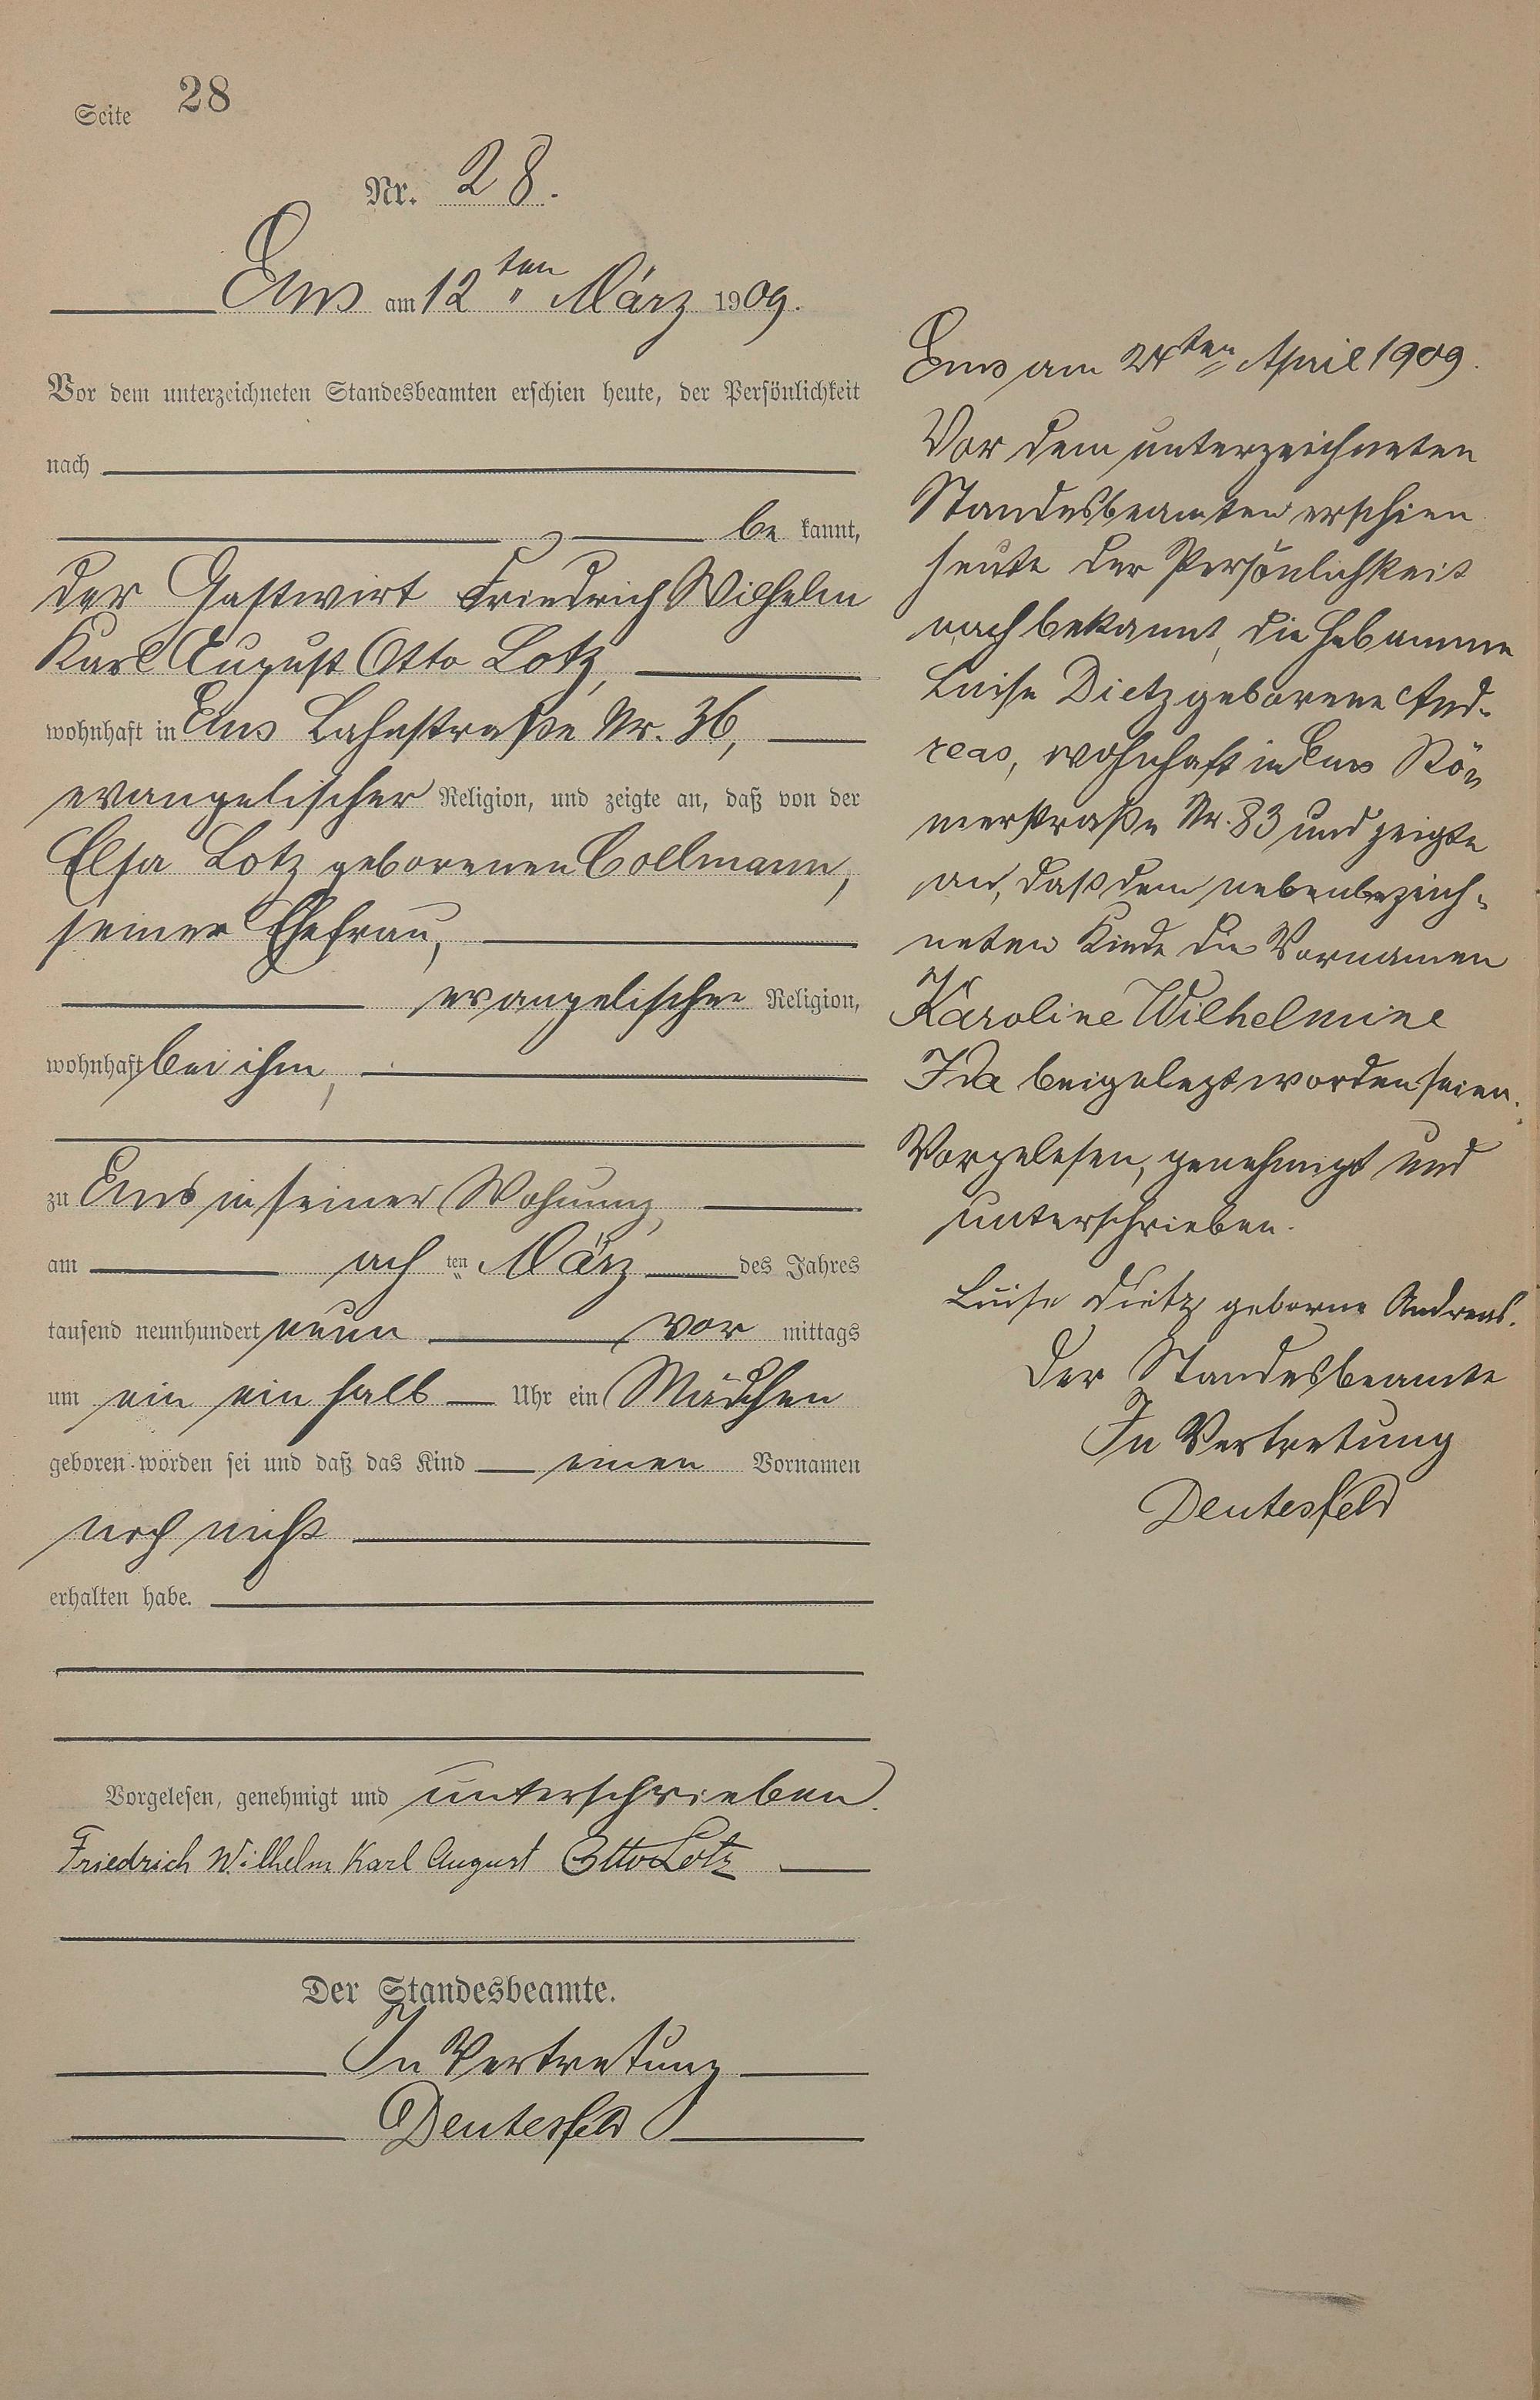 Seite 28
Nr. 28.
Ems am 12ten März 1909.
Vor dem unterzeichneten Standesbeamten erschien heute, der Persönlichkeit
nach
be kannt,
der Gastwirt Friedrich Wilhelm
Karl August Otto Lotz,
wohnhaft in Ems Lahnstraße Nr. 36,
evangelischer Religion, und zeigte an, daß von der
Elsa Lotz geborenen Collmann,
seiner Ehefrau,
evangelischer Religion,
wohnhaft bei ihm,
zu Ems in seiner Wohnung,
am ach ten März des Jahres
tausend neunhundert neun vor mittags
um ein ein halb Uhr ein Mädchen
geboren worden sei und daß das Kind einen Vornamen
noch nicht
erhalten habe.
Vorgelesen, genehmigt und unterschrieben.
Friedrich Wilhelm Karl August Otto Lotz
Der Standesbeamte.
In Vertretung
Deutesfeld
Ems am 24ten April 1909.
Vor dem unterzeichneten
Standesbeamten erschien
heute der Persönlichkeit
nach bekannt, die Hebamme
Luise Dietz geborene And-
reas, wohnhaft in Ems Rö-
merstraße Nr. 83 und zeigte
an, daß dem nebenbezeich-
neten Kinde die Vornamen
Karoline Wilhelmine
Ida beigelegt worden seien.
Vorgelesen, genehmigt und
unterschrieben.
Luise Dietz geborne Andreas.
Der Standesbeamte
In Vertretung
Deutesfeld